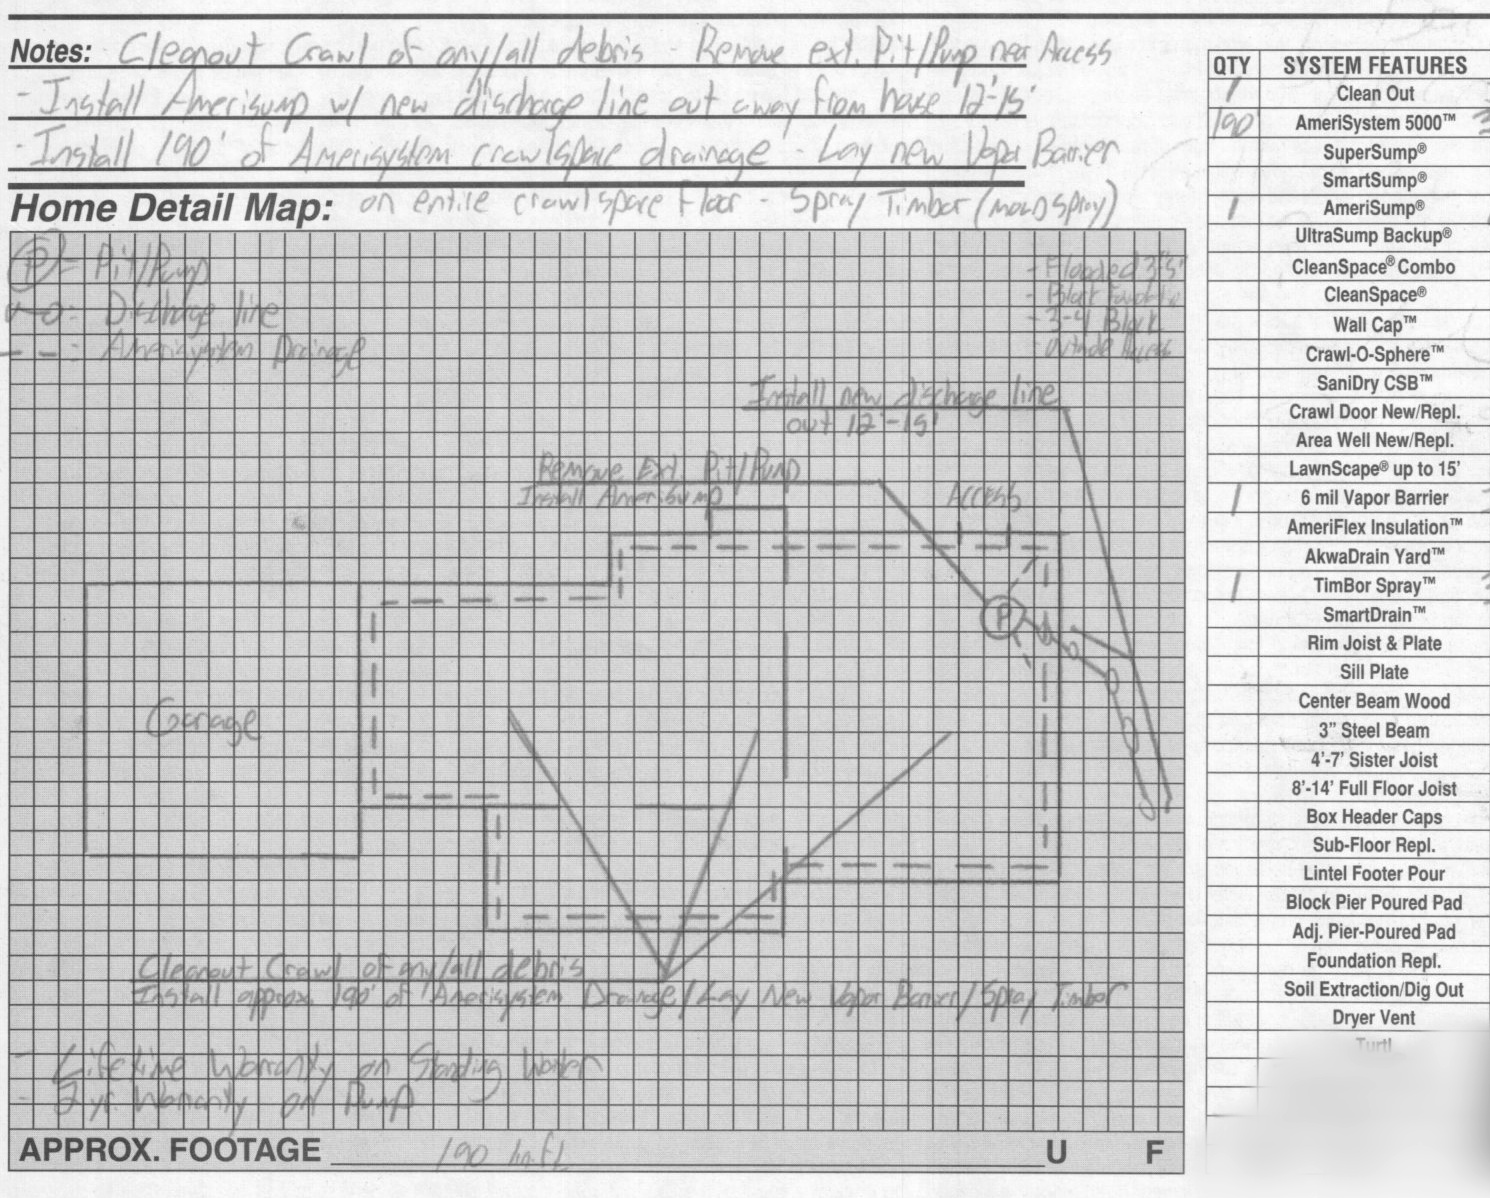 Notes: - Cleanout Crawl of any/all debris - Remove ext. Pit/Pump near Access
- Install Amerisump w/ new discharge line out away from house 12'-15'
- Install 190' of Amerisystem crawlspace drainage - Lay new Vapor Barrier
on entire crawlspace Floor - Spray Timbor (mold spray)
Home Detail Map:
P = Pit/Pump
= Discharge line
= Amerisystem Drainage
- Flooded 3"
- Block
- 3-4 Block
- outside Access
Install new discharge line
out 12'-15'
Remove Ext. Pit/Pump
Install Amerisump
Access
P
Garage
Cleanout Crawl of any/all debris
Install approx. 190' of Amerisystem Drainage/Lay New Vapor Barrier/Spray Timbor
- Lifetime Warranty on Standing Water
- 2 yr. Warranty on Pump
APPROX. FOOTAGE 190 lin. ft. U F
QTY SYSTEM FEATURES
1 Clean Out
190 AmeriSystem 5000™
SuperSump®
SmartSump®
1 AmeriSump®
UltraSump Backup®
CleanSpace® Combo
CleanSpace®
Wall Cap™
Crawl-O-Sphere™
SaniDry CSB™
Crawl Door New/Repl.
Area Well New/Repl.
LawnScape® up to 15'
1 6 mil Vapor Barrier
AmeriFlex Insulation™
AkwaDrain Yard™
1 TimBor Spray™
SmartDrain™
Rim Joist & Plate
Sill Plate
Center Beam Wood
3" Steel Beam
4'-7' Sister Joist
8'-14' Full Floor Joist
Box Header Caps
Sub-Floor Repl.
Lintel Footer Pour
Block Pier Poured Pad
Adj. Pier-Poured Pad
Foundation Repl.
Soil Extraction/Dig Out
Dryer Vent